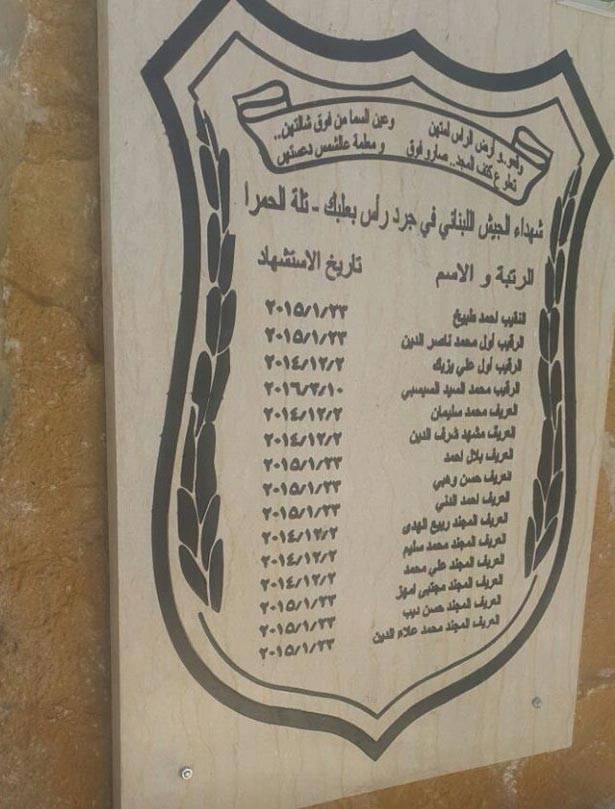 و أرض الراس لمتين وعين السما من فوق شالتهين..
ع كتف المجد.. صارو فوق و معلمة عالشمس دعستهين
شهداء الجيش اللبناني في جرد رأس بعلبك - تلة الحمرا
الرتبة و الاسم تاريخ الاستشهاد
النقيب احمد طبيخ ٢٠١٥/١/٢٣
الرقيب أول محمد ناصر الدين ٢٠١٥/١/٢٣
الرقيب أول علي يزبك ٢٠١٤/١٢/٢
الرقيب محمد السيد السبسبي ٢٠١٦/٣/١٠
العريف محمد سليمان ٢٠١٤/١٢/٢
العريف مشهد شرف الدين ٢٠١٤/١٢/٢
العريف بلال احمد ٢٠١٥/١/٢٣
العريف حسن وهبي ٢٠١٥/١/٢٣
العريف احمد الدني ٢٠١٥/١/٢٣
العريف المجند ربيع الهدى ٢٠١٤/١٢/٢
العريف المجند محمد سليم ٢٠١٤/١٢/٢
العريف المجند علي محمد ٢٠١٤/١٢/٢
العريف المجند مجتبى امهز ٢٠١٥/١/٢٣
العريف المجند حسن ديب ٢٠١٥/١/٢٣
العريف المجند محمد علاء الدين ٢٠١٥/١/٢٣